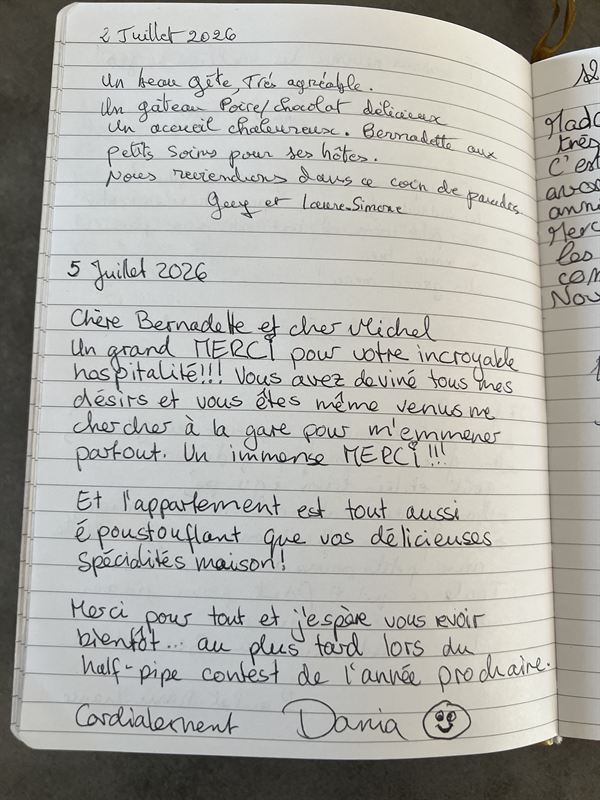 2 Juillet 2026
Un beau gîte, très agréable.
Un gâteau Poire/chocolat délicieux
Un accueil chaleureux. Bernadette aux
petits soins pour ses hôtes.
Nous reviendrons dans ce coin de paradis.
Guy et Laure-Simone
5 Juillet 2026
Chère Bernadette et cher Michel
Un grand MERCi pour votre incroyable
hospitalité!!! Vous avez deviné tous mes
désirs et vous êtes même venus me
chercher à la gare pour m'emmener
partout. Un immense MERCi!!!
Et l'appartement est tout aussi
époustouflant que vos délicieuses
spécialités maison!
Merci pour tout et j'espère vous revoir
bientôt... au plus tard lors du
half-pipe contest de l'année prochaine.
Cordialement Dania
Mada
très
C'est
avo
anni
Merc
les
com
Nou